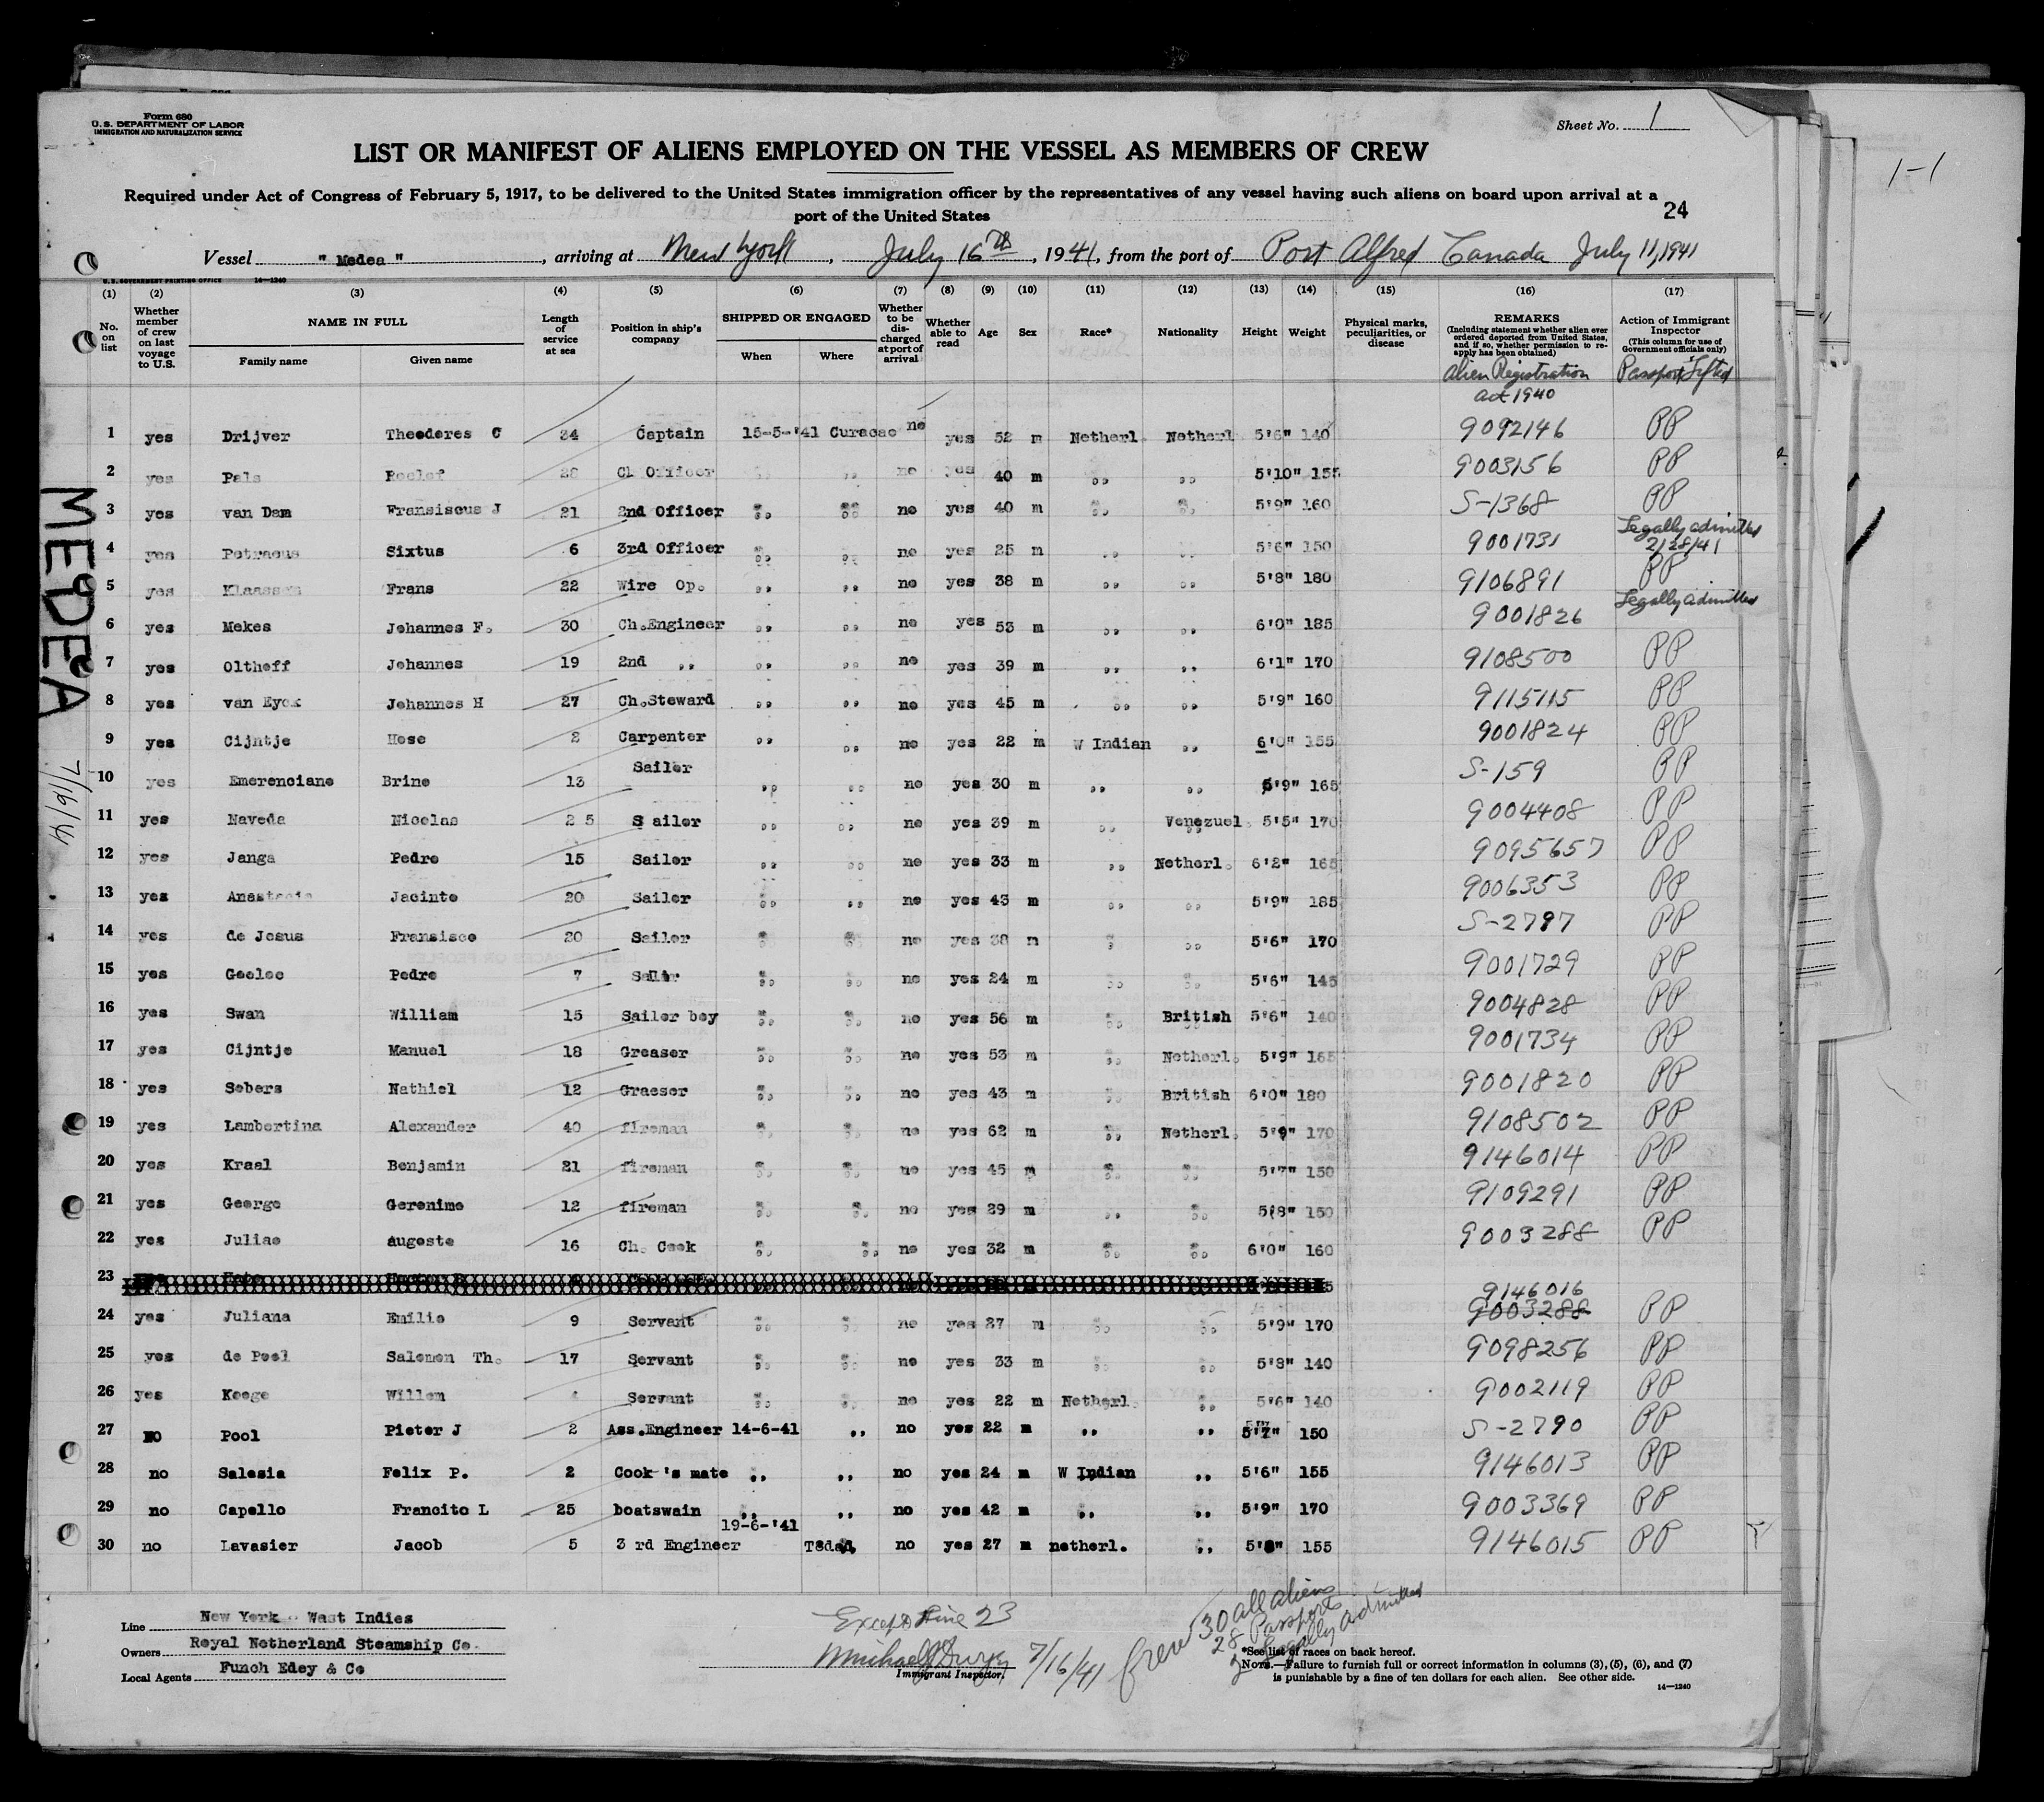 Form 680
U. S. DEPARTMENT OF LABOR
IMMIGRATION AND NATURALIZATION SERVICE
Sheet No. 1
1-1
LIST OR MANIFEST OF ALIENS EMPLOYED ON THE VESSEL AS MEMBERS OF CREW
Required under Act of Congress of February 5, 1917, to be delivered to the United States immigration officer by the representatives of any vessel having such aliens on board upon arrival at a
port of the United States
24
Vessel " Medea ", arriving at New York, July 16th, 1941, from the port of Port Alfred Canada July 11, 1941
U. S. GOVERNMENT PRINTING OFFICE 14—1240
(1) (2) (3) (4) (5) (6) (7) (8) (9) (10) (11) (12) (13) (14) (15) (16) (17)
No. on list
Whether member of crew on last voyage to U.S.
NAME IN FULL
Family name Given name
Length of service at sea
Position in ship's company
SHIPPED OR ENGAGED
When Where
Whether to be discharged at port of arrival
Whether able to read
Age Sex Race* Nationality Height Weight
Physical marks, peculiarities, or disease
REMARKS
(Including statement whether alien ever ordered deported from United States, and if so, whether permission to reapply has been obtained)
Alien Registration
act 1940
Action of Immigrant Inspector
(This column for use of Government officials only)
Passport Lifted
1 yes Drijver Theoderes C 34 Captain 15-5-'41 Curacao no yes 52 m Netherl. Netherl 5'6" 140 9092146 PP
2 yes Pals Roelof 28 Ch Officer ,, ,, no yes 40 m ,, ,, 5'10" 155 9003156 PP
3 yes van Dam Fransiscus J 21 2nd Officer ,, ,, no yes 40 m ,, ,, 5'9" 160 S-1368 PP
4 yes Petraeus Sixtus 6 3rd Officer ,, ,, no yes 25 m ,, ,, 5'6" 150 9001731 Legally admitted 2/28/41
5 yes Klaassen Frans 22 Wire Op. ,, ,, no yes 38 m ,, ,, 5'8" 180 9106891 PP
6 yes Mekes Johannes F. 30 Ch.Engineer ,, ,, no yes 53 m ,, ,, 6'0" 185 9001826 Legally admitted
7 yes Oltheff Johannes 19 2nd ,, ,, ,, no yes 39 m ,, ,, 6'1" 170 9108500 PP
8 yes van Eyck Johannes H 27 Ch.Steward ,, ,, no yes 45 m ,, ,, 5'9" 160 9115115 PP
9 yes Cijntje Hose 2 Carpenter ,, ,, no yes 22 m W Indian ,, 6'0" 155 9001824 PP
10 yes Emerenciano Brine 13 Sailer ,, ,, no yes 30 m ,, ,, 5'9" 165 S-159 PP
11 yes Naveda Nicolas 25 Sailer ,, ,, no yes 39 m ,, Venezuel. 5'5" 170 9004408 PP
12 yes Janga Pedro 15 Sailer ,, ,, no yes 33 m ,, Netherl. 6'2" 165 9095657 PP
13 yes Anastacia Jacinto 20 Sailer ,, ,, no yes 43 m ,, ,, 5'9" 185 9006353 PP
14 yes de Jesus Fransisco 20 Sailer ,, ,, no yes 38 m ,, ,, 5'6" 170 S-2797 PP
15 yes Goeloe Pedro 7 Sailer ,, ,, no yes 24 m ,, ,, 5'6" 145 9001729 PP
16 yes Swan William 15 Sailer boy ,, ,, no yes 56 m ,, British 5'6" 140 9004828 PP
17 yes Cijntje Manuel 18 Greaser ,, ,, no yes 53 m ,, Netherl. 5'9" 165 9001734 PP
18 yes Sobers Nathiel 12 Graeser ,, ,, no yes 43 m ,, British 6'0" 180 9001820 PP
19 yes Lambertina Alexander 40 fireman ,, ,, no yes 62 m ,, Netherl. 5'9" 170 9108502 PP
20 yes Kraal Benjamin 21 fireman ,, ,, no yes 45 m ,, ,, 5'7" 150 9146014 PP
21 yes George Geronimo 12 fireman ,, ,, no yes 29 m ,, ,, 5'8" 150 9109291 PP
22 yes Juliao augoste 16 Ch. Cook ,, ,, no yes 32 m ,, ,, 6'0" 160 9003288 PP
23
24 yes Juliana Emilio 9 Servant ,, ,, no yes 27 m ,, ,, 5'9" 170 9146016 9003288 PP
25 yes de Pool Salomon Th. 17 Servant ,, ,, no yes 33 m ,, ,, 5'8" 140 9098256 PP
26 yes Keege Willem 4 Servant ,, ,, no yes 22 m Netherl. ,, 5'6" 140 9002119 PP
27 no Pool Pieter J 2 Ass.Engineer 14-6-41 ,, no yes 22 m ,, ,, 5'7" 150 S-2790 PP
28 no Salesia Felix P. 2 Cook 's mate ,, ,, no yes 24 m W Indian ,, 5'6" 155 9146013 PP
29 no Capello Francito L 25 boatswain ,, ,, no yes 42 m ,, ,, 5'9" 170 9003369 PP
30 no Lavasier Jacob 5 3 rd Engineer 19-6-'41 T8dad, no yes 27 m netherl. ,, 5'8" 155 9146015 PP
MEDEA
7/16/41
Line New York - West Indies
Owners Royal Netherland Steamship Co.
Local Agents Funch Edey & Co
Except Line 23
Michael
Immigrant Inspector.
7/16/41
Crew 30 all aliens
28 Passports
2 Legally admitted
*See list of races on back hereof.
NOTE.—Failure to furnish full or correct information in columns (3), (5), (6), and (7)
is punishable by a fine of ten dollars for each alien. See other side.
14—1240